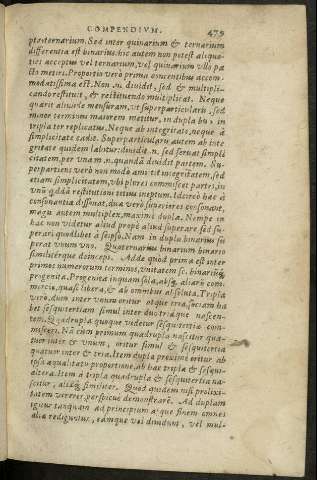 COMPENDIVM. 479
pter ternarium. Sed inter quinarium & ternarium
differentia est binarius. hic autem non potest aliquo-
ties acceptus vel ternarium, vel quinarium vllo pa
cto metiri. Proportio verò prima concentibus accom-
modatissima est. Non .n. diuidit, sed & multipli-
cando restituit, & restituendo multiplicat. Neque
quarit aliunde mensuram, vt superparticularis, sed
minor terminus maiorem metitur, in dupla bis, in
tripla ter replicatus. Neque ab integritate, neque à
simplicitate cadit. Superparticularis autem ab inte-
gritate quidem labitur: diuidit .n. sed seruat simpli
citatem, per vnam .n. quandā diuidit partem. Su-
perpartiens verò non modò amittit integritatem, sed
etiam simplicitatem, vbi plures commiscet partes, in
vnū quddā restitutioni totius ineptum. Idcircò hæc à
consonantia dissonat, duæ verò superiores consonāt,
magis autem multiplex, maximè dupla. Nempe in
hac non videtur aliud propè aliud superare, sed su-
perari quodlibet à seipso. Nam in dupla binarius su
perat vnum vno. Quaternarius binarium binario
similiterque deinceps. Adde quòd prima est inter
primos numerorum terminos, vnitatem sc. binariūq;
progenita. Progenita inquam sola, absq; aliarū com-
mercio, quasi libera, & ab omnibus absoluta. Tripla
verò, dum inter vnum oritur atque tria, sociam ha
bet sesquentertiam simul inter duo triaque nascen-
tem. Quadrupla quoque videtur sesquitertio com-
misceri. Nā cùm primùm quadrupla nascitur qua-
tuor inter & vnum, oritur simul & sesquitertia
quatuor inter & tria. Item dupla proximè oritur ab
ipsa æqualitatis proportione, ab hac tripla & sesqui-
altera. Item à tripla quadrupla & sesquitertia na-
scitur, aliæq; similiter. Quod quidem nisi prolixi-
tatem vererer, perspicuè demonstrarē. Ad duplam
igitur tanquam ad principium atque finem omnes
aliæ rediguntur, eamque vel diuidunt, vel mul-